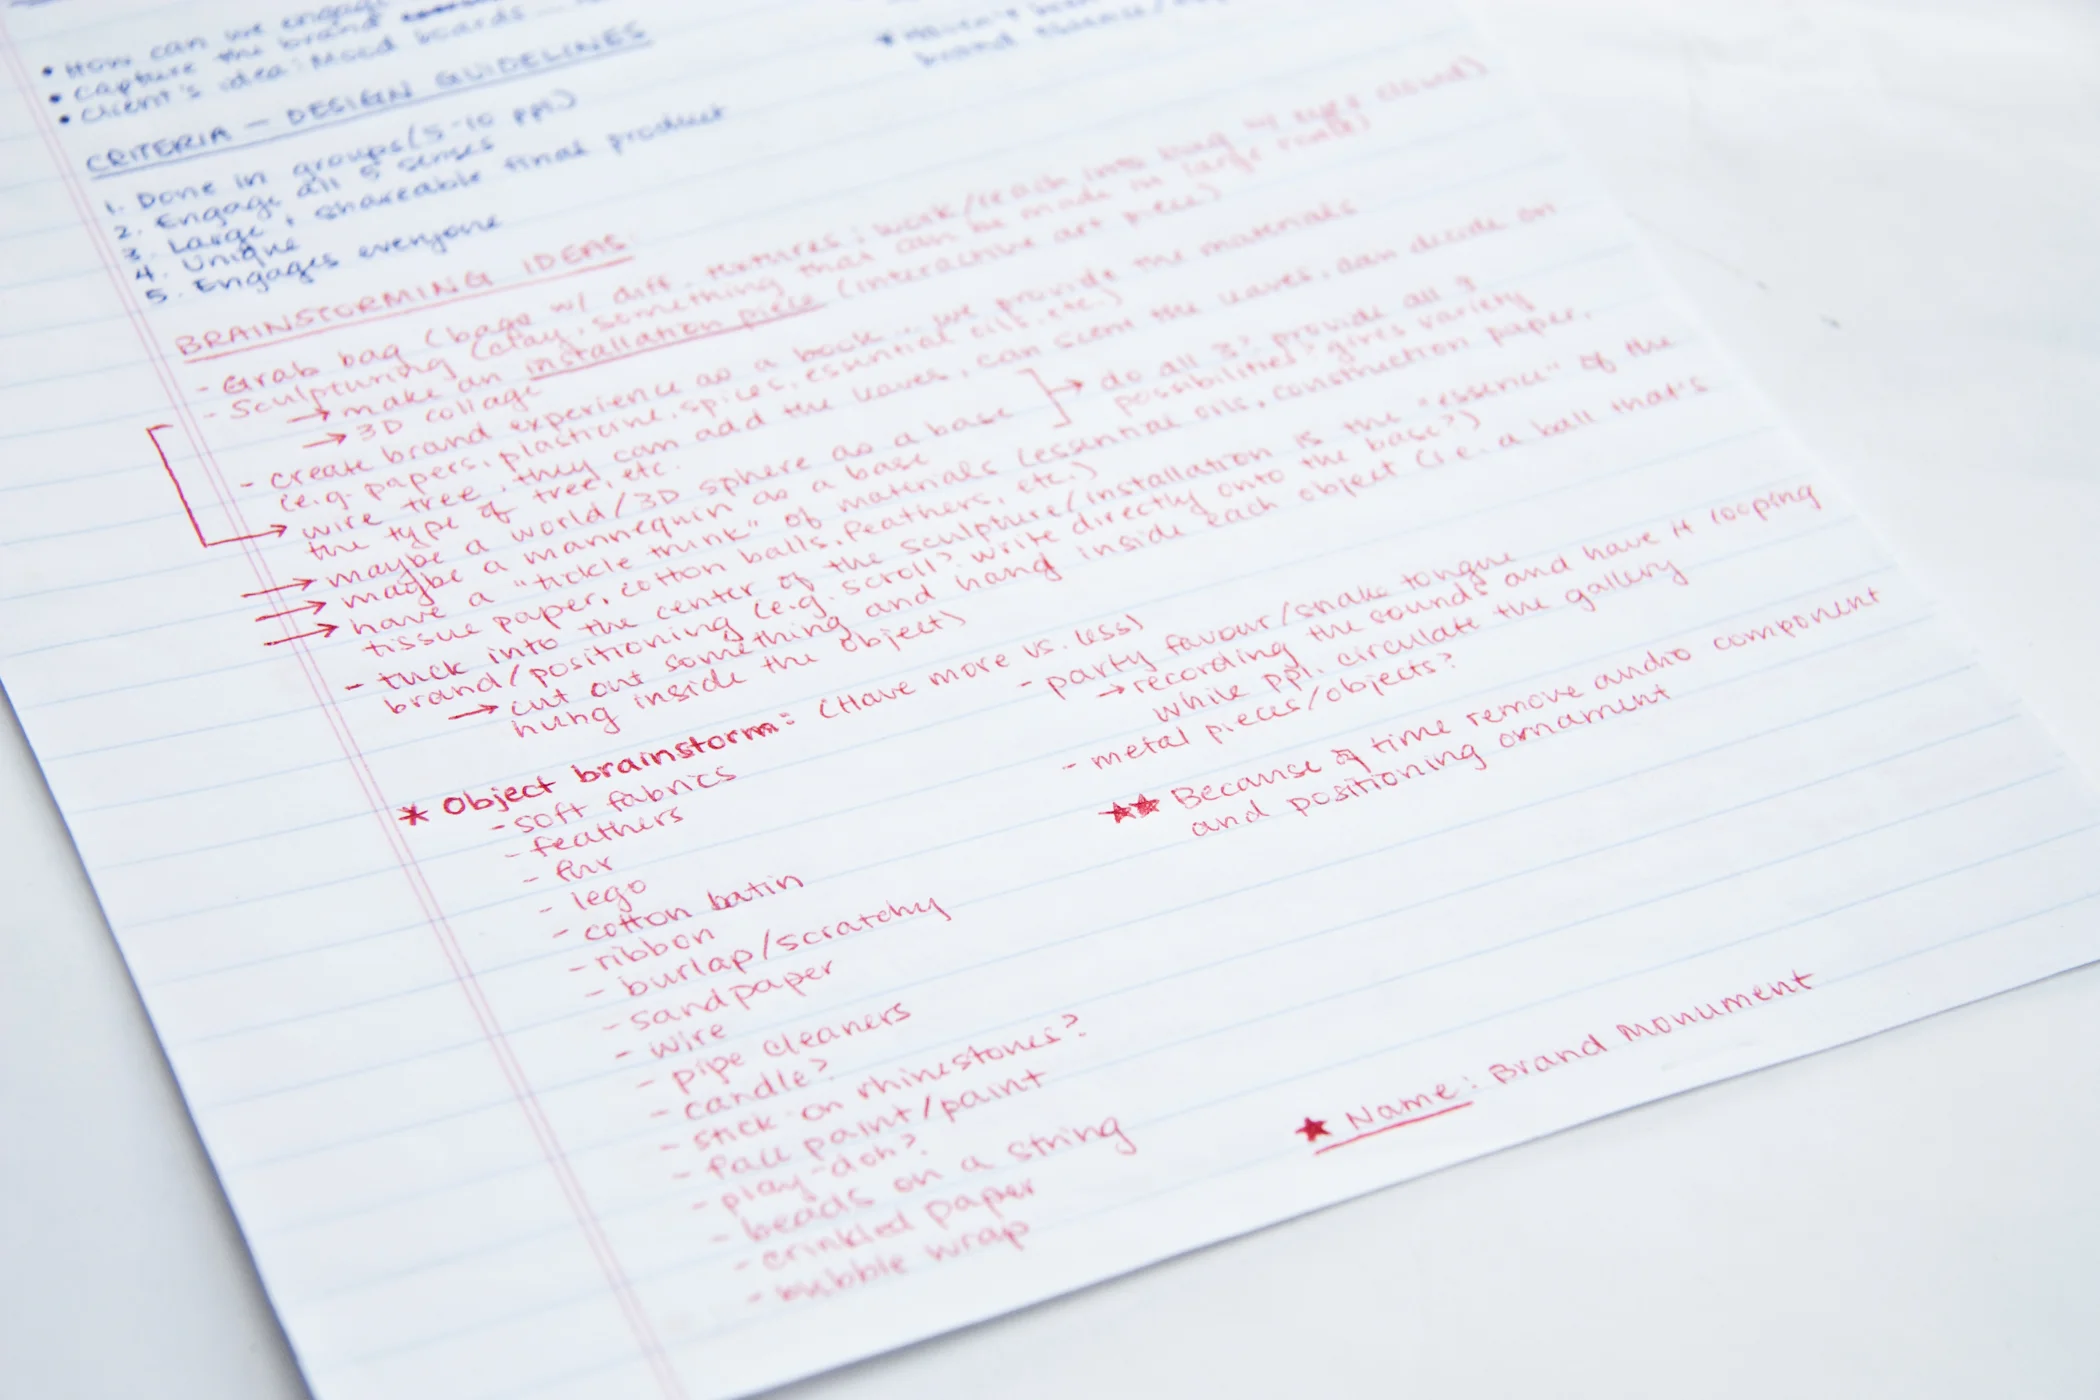 • How can we engage
• Capture the brand
• Client's idea: Mood boards
brand
CRITERIA — DESIGN GUIDELINES
1. Done in groups (5-10 ppl)
2. Engage all 5 senses
3. Large, shareable final product
4. Unique
5. Engages everyone
BRAINSTORMING IDEAS
- Grab bag (bags w/ diff. textures; walk/reach into bag w/ eyes closed)
- Sculpturing (clay, something that can be made in large
→ make an installation piece (interactive art piece)
→ 3D collage
- create brand experience as a book ... we provide the materials
(e.g. papers, plasticine, spices, essential oils, etc.)
→ wire tree, they can add the leaves, can scent the leaves, can decide on
the type of tree, etc.
→ maybe a world/3D sphere as a base
→ maybe a mannequin as a base
→ do all 3? provide all 3
possibilities? gives variety
→ have a "tickle trunk" of materials (essential oils, construction paper,
tissue paper, cotton balls, feathers, etc.)
- tuck into the center of the sculpture/installation is the "essence" of the
brand/positioning (e.g. scroll? write directly onto the base?)
→ cut out something and hang inside each object (i.e. a ball that's
hung inside the object)
* Object brainstorm: (Have more vs. less)
- soft fabrics
- feathers
- fur
- lego
- cotton batin
- ribbon
- burlap/scratchy
- sandpaper
- wire
- pipe cleaners
- candle?
- stick-on rhinestones?
- fall paint/paint
- play-doh?
- beads on a string
- crinkled paper
- bubble wrap
- party favour/snake tongue
→ recording the sounds and have it looping
while ppl. circulate the gallery
- metal pieces/objects?
★★ Because of time remove audio component
and positioning ornament
★ Name: Brand Monument